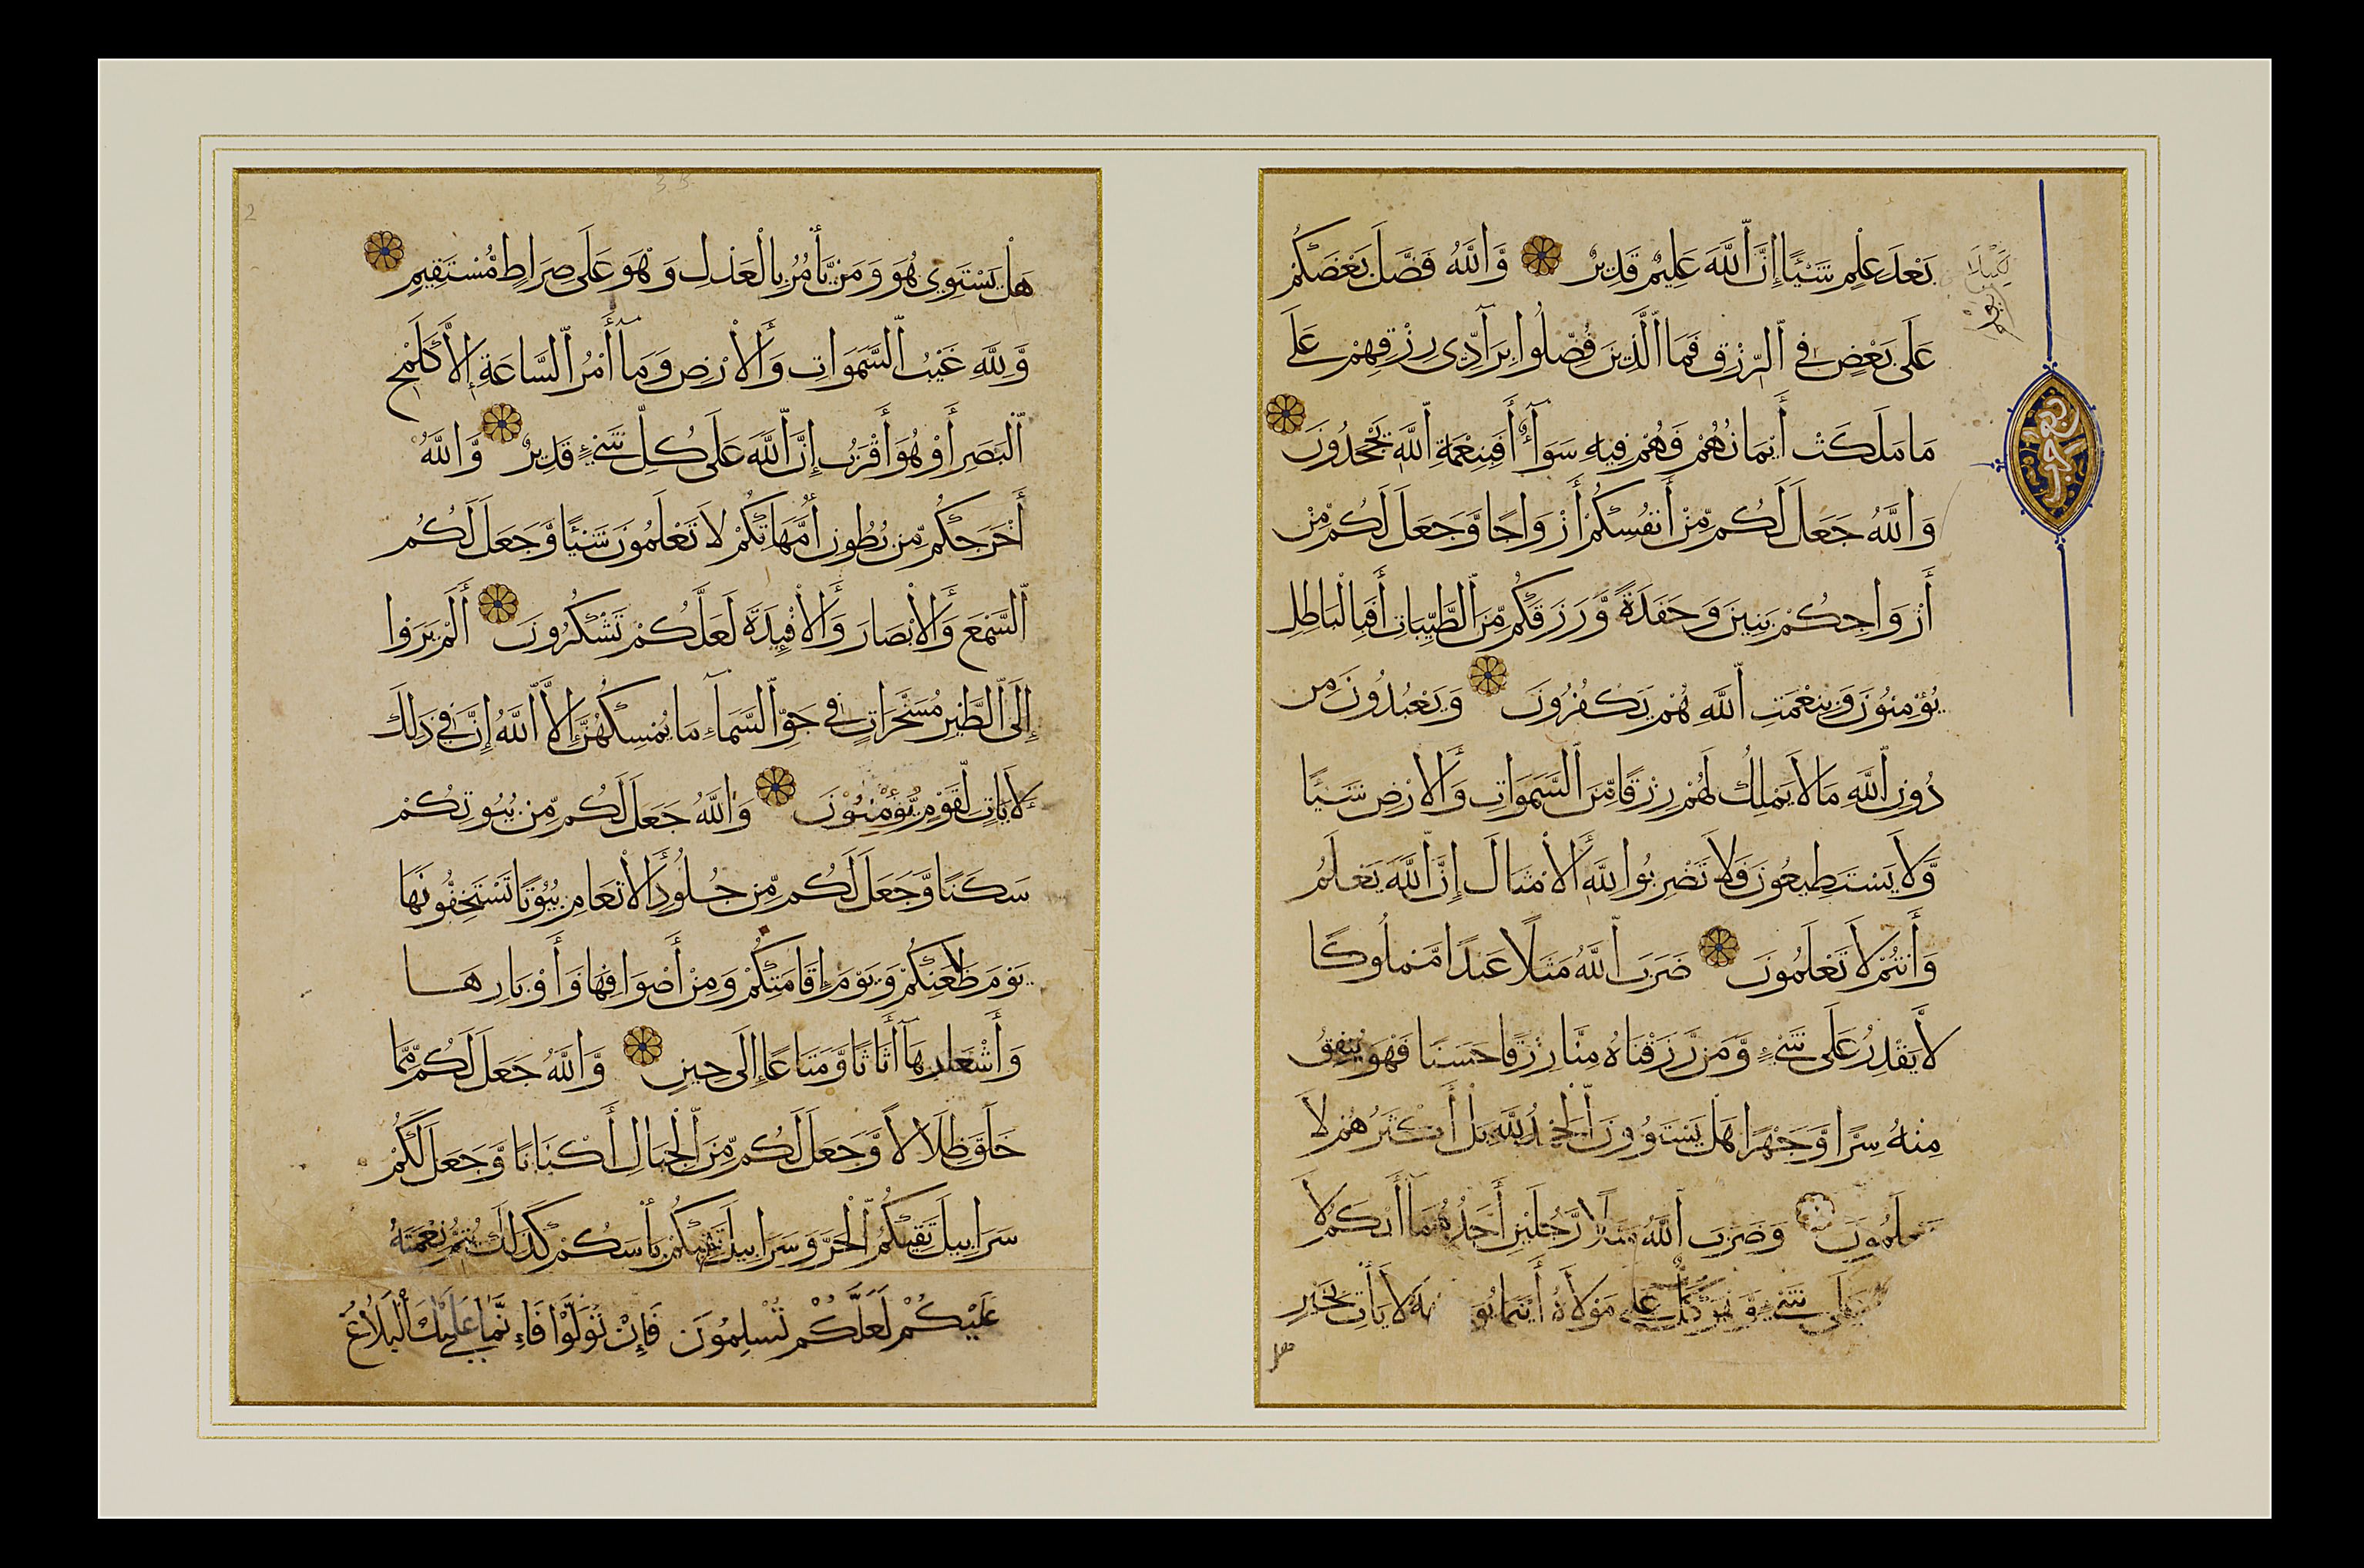 بَعْدَ عِلْمٍ شَيْئًا إِنَّ ٱللَّهَ عَلِيمٌ قَدِيرٌ وَّٱللَّهُ فَضَّلَ بَعْضَكُمْ
عَلَى بَعْضٍ فِي ٱلرِّزْقِ فَمَا ٱلَّذِينَ فُضِّلُوا بِرَآدِّي رِزْقِهِمْ عَلَى
مَا مَلَكَتْ أَيْمَانُهُمْ فَهُمْ فِيهِ سَوَآءٌ أَفَبِنِعْمَةِ ٱللَّهِ يَجْحَدُونَ
وَٱللَّهُ جَعَلَ لَكُم مِّنْ أَنفُسِكُمْ أَزْوَاجًا وَّجَعَلَ لَكُم مِّنْ
أَزْوَاجِكُمْ بَنِينَ وَحَفَدَةً وَّرَزَقَكُم مِّنَ ٱلطَّيِّبَاتِ أَفَبِالْبَاطِلِ
يُؤْمِنُونَ وَبِنِعْمَتِ ٱللَّهِ هُمْ يَكْفُرُونَ وَيَعْبُدُونَ مِن
دُونِ ٱللَّهِ مَا لَا يَمْلِكُ لَهُمْ رِزْقًا مِّنَ ٱلسَّمَوَاتِ وَٱلْأَرْضِ شَيْئًا
وَّلَا يَسْتَطِيعُونَ فَلَا تَضْرِبُوا لِلَّهِ ٱلْأَمْثَالَ إِنَّ ٱللَّهَ يَعْلَمُ
وَأَنتُمْ لَا تَعْلَمُونَ ضَرَبَ ٱللَّهُ مَثَلًا عَبْدًا مَّمْلُوكًا
لَّا يَقْدِرُ عَلَى شَيْءٍ وَّمَن رَّزَقْنَاهُ مِنَّا رِزْقًا حَسَنًا فَهُوَ يُنفِقُ
مِنْهُ سِرًّا وَّجَهْرًا هَلْ يَسْتَوُونَ ٱلْحَمْدُ لِلَّهِ بَلْ أَكْثَرُهُمْ لَا
يَعْلَمُونَ وَضَرَبَ ٱللَّهُ مَثَلًا رَّجُلَيْنِ أَحَدُهُمَآ أَبْكَمُ لَا
عَلَى شَيْءٍ وَّهُوَ كَلٌّ عَلَى مَوْلَاهُ أَيْنَمَا لَا يَأْتِ بِخَيْرٍ
هَلْ يَسْتَوِي هُوَ وَمَن يَّأْمُرُ بِالْعَدْلِ وَهُوَ عَلَى صِرَاطٍ مُّسْتَقِيمٍ
وَّلِلَّهِ غَيْبُ ٱلسَّمَوَاتِ وَٱلْأَرْضِ وَمَآ أَمْرُ ٱلسَّاعَةِ إِلَّا كَلَمْحِ
ٱلْبَصَرِ أَوْ هُوَ أَقْرَبُ إِنَّ ٱللَّهَ عَلَى كُلِّ شَيْءٍ قَدِيرٌ وَّٱللَّهُ
أَخْرَجَكُم مِّن بُطُونِ أُمَّهَاتِكُمْ لَا تَعْلَمُونَ شَيْئًا وَّجَعَلَ لَكُمُ
ٱلسَّمْعَ وَٱلْأَبْصَارَ وَٱلْأَفْئِدَةَ لَعَلَّكُمْ تَشْكُرُونَ أَلَمْ يَرَوْا
إِلَى ٱلطَّيْرِ مُسَخَّرَاتٍ فِي جَوِّ ٱلسَّمَآءِ مَا يُمْسِكُهُنَّ إِلَّا ٱللَّهُ إِنَّ فِي ذَلِكَ
لَآيَاتٍ لِّقَوْمٍ يُّؤْمِنُونَ وَٱللَّهُ جَعَلَ لَكُم مِّن بُيُوتِكُمْ
سَكَنًا وَّجَعَلَ لَكُم مِّن جُلُودِ ٱلْأَنْعَامِ بُيُوتًا تَسْتَخِفُّونَهَا
يَوْمَ ظَعْنِكُمْ وَيَوْمَ إِقَامَتِكُمْ وَمِنْ أَصْوَافِهَا وَأَوْبَارِهَا
وَأَشْعَارِهَآ أَثَاثًا وَّمَتَاعًا إِلَى حِينٍ وَّٱللَّهُ جَعَلَ لَكُم مِّمَّا
خَلَقَ ظِلَالًا وَّجَعَلَ لَكُم مِّنَ ٱلْجِبَالِ أَكْنَانًا وَّجَعَلَ لَكُمْ
سَرَابِيلَ تَقِيكُمُ ٱلْحَرَّ وَسَرَابِيلَ تَقِيكُم بَأْسَكُمْ كَذَلِكَ يُتِمُّ نِعْمَتَهُ
عَلَيْكُمْ لَعَلَّكُمْ تُسْلِمُونَ فَإِنْ تَوَلَّوْا فَإِنَّمَا عَلَيْكَ ٱلْبَلَاغُ